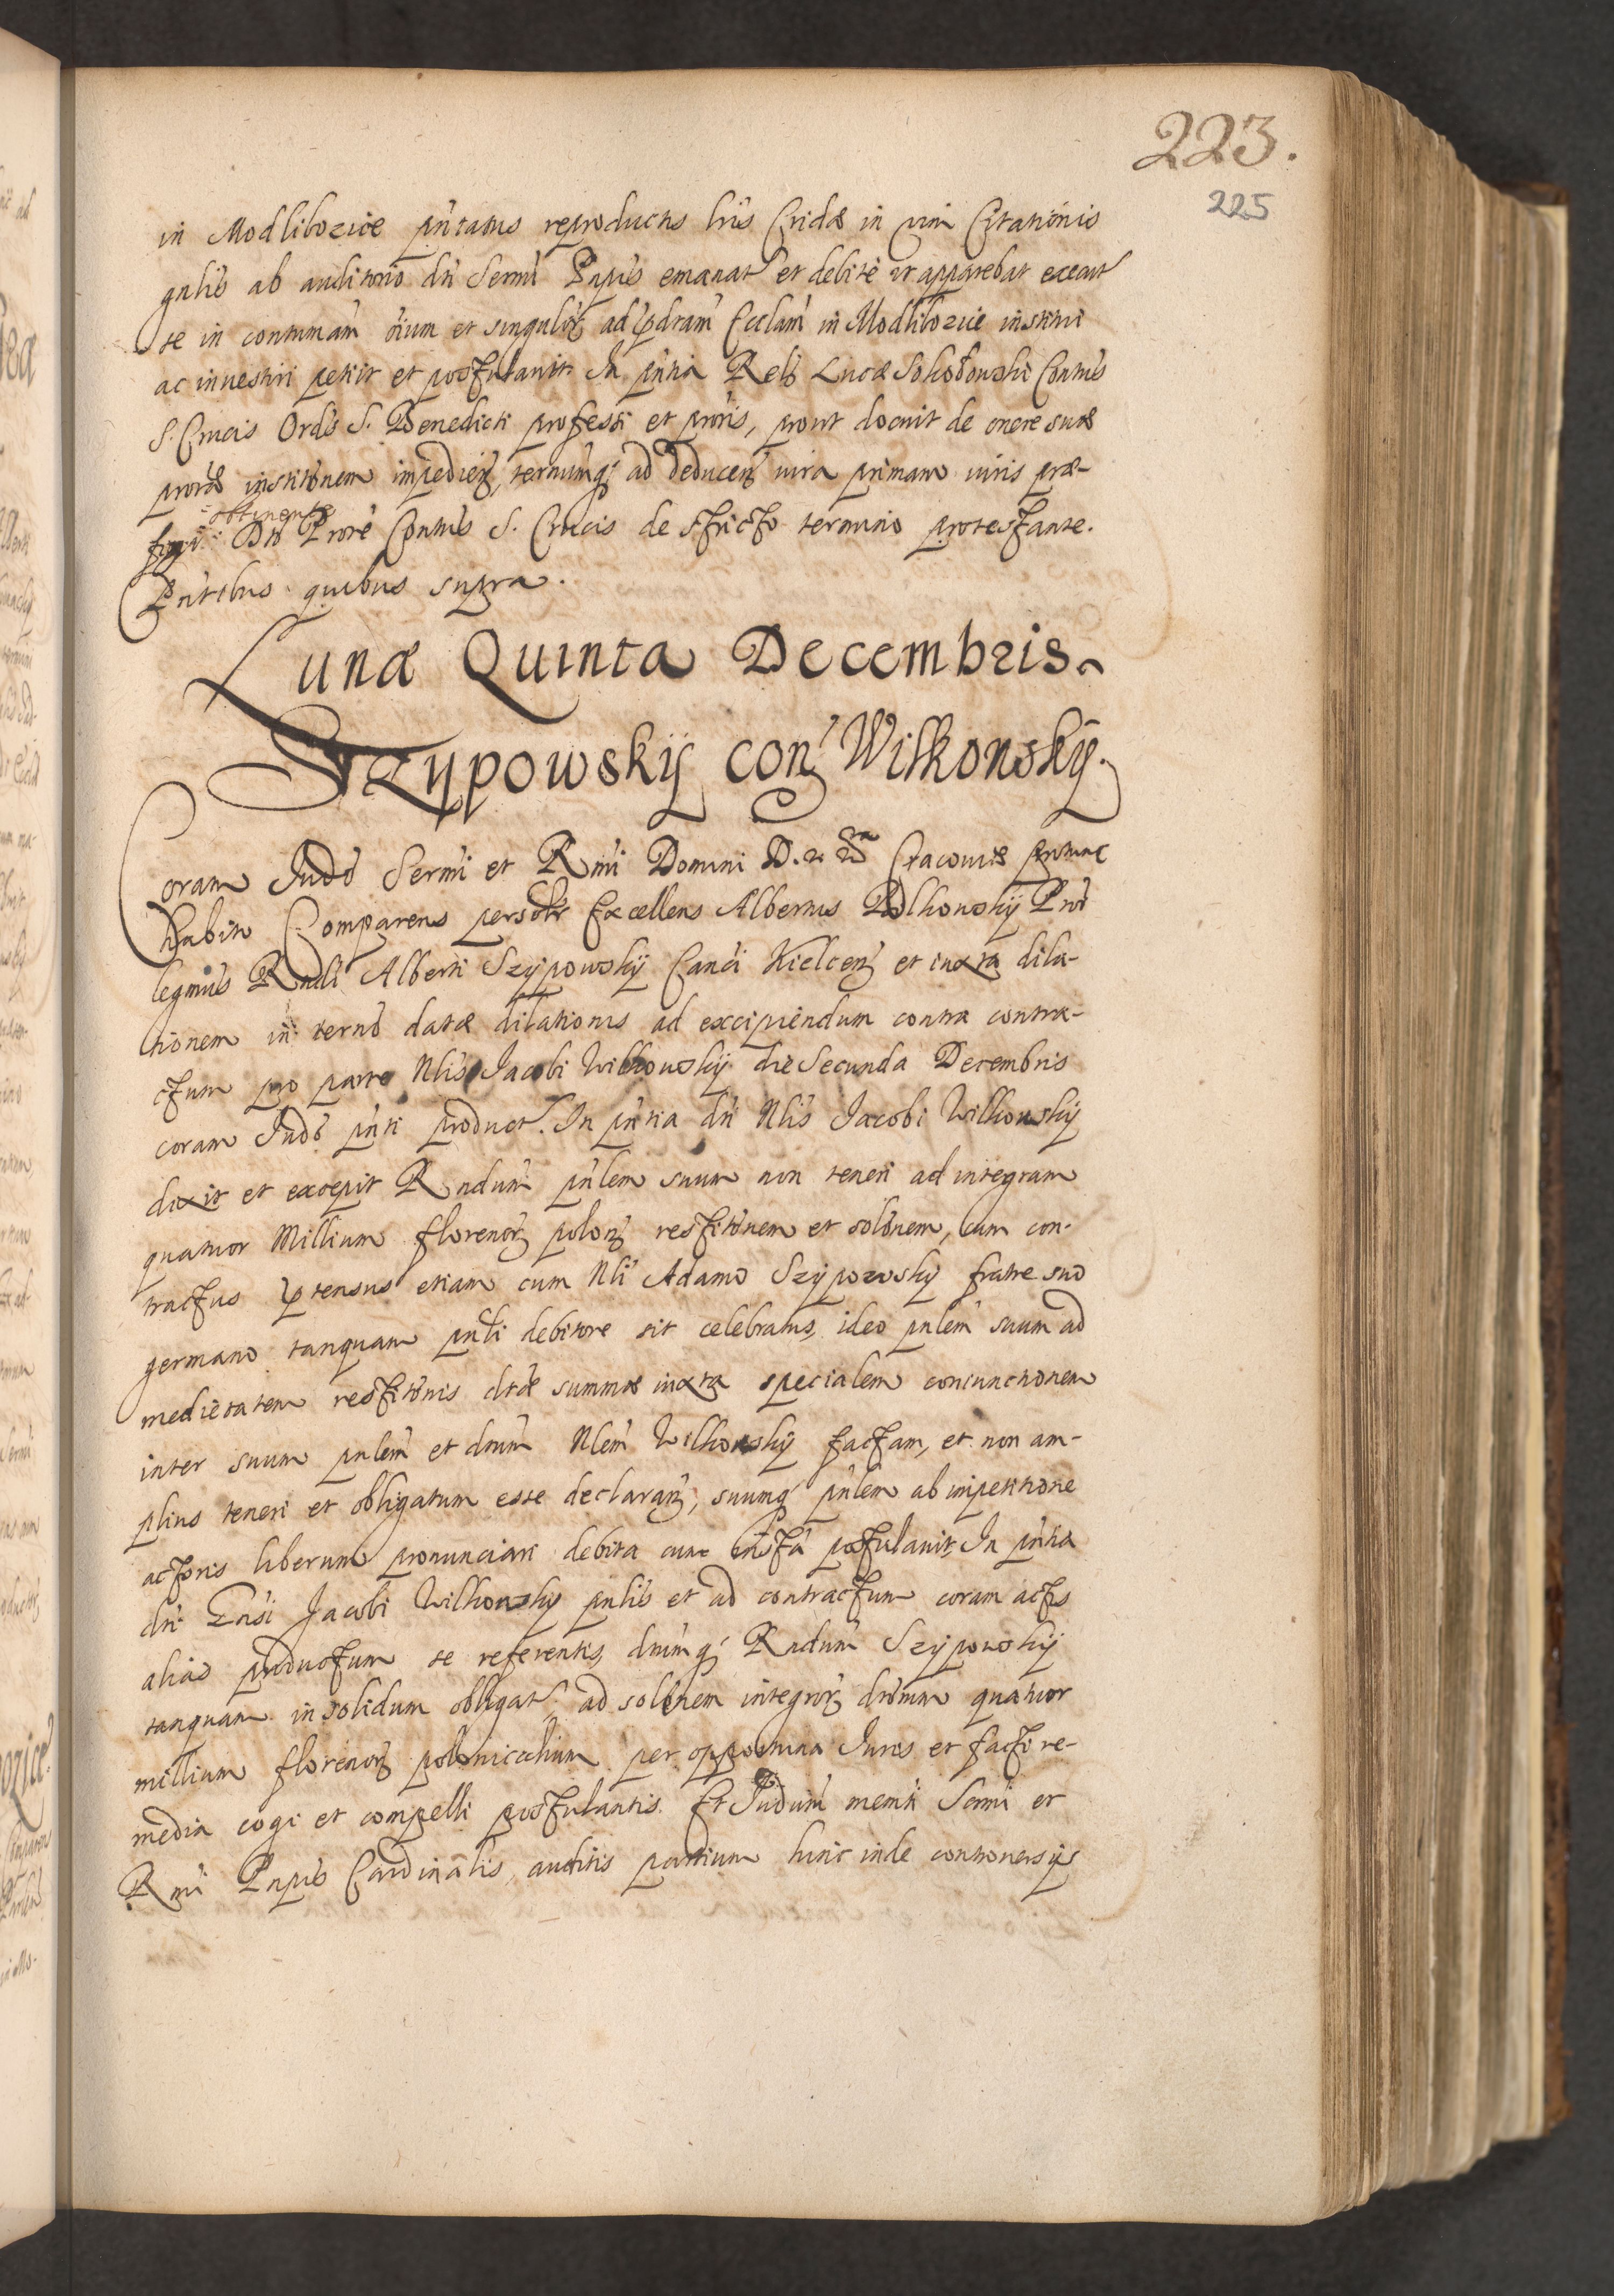 223.
225
in Modlibozice pntatus reproductis lriis Cridæ in vim Citationis
gnlis ab auditorio dti Sermi Pnpis emanat et debite ut apparebat execut
se in contumam oium et singulor ad pdtam Ecclam in Modlibozice institui
ac investiri petiit et postulavit. In pntia Relis Lucæ Conūs
S. Crucis Ordis S. Benedicti professi et pnris, prout docuit de onere suæ
prioræ institonem impedien, terminumq ad deducen iura primam iuris præ-
=obtinente
figi. Dno Priore Conūs S. Crucis de stricto termino protestante.
Pntibus quibus supra.
Lunæ Quinta Decembris.
Szypowskij con Wilkonskij.
Coram Judo Sermi et Rmi Domini D. n Cracoviæ
habito Comparens personlr Excellens Albertus Polkowskij Pror
legmus Rndi Alberti Szypowskij Canci Kielcen et iuxta dila-
tionem in termo datæ dilationis ad excipiendum contra contra-
ctum pro parte Nlis Jacobi Wilkowskij die Secunda Decembris
coram Judo pnti product. In pntia dti Nlis Jacobi Wilkowskij
dixit et excepit Rndum pnlem suum non teneri ad integram
quatuor Millium florenor polon restitonem et solonem, cum con-
tractus ptensus etiam cum Nli Adamo Szypowskij fratre suo
germano tanquam pnli debitore sit celebratus, ideo pnlem suum ad
medietatem restitonis dtæ summæ iuxta specialem coniunctionem
inter suum pnlem et dtum Nlem Wilkowskij factam, et non am-
plius teneri et obligatum esse declarari, suumq pnlem ab impetitione
actoris liberum pronunciari debita cum instā postulavit, In pntia
dti Gnsi Jacobi Wilkowskij pnlis et ad contractum coram actis
alias productum se referentis, dtumq Rndum Szypowskij
tanquam in solidum obligat, ad solonem integror dtorum quatuor
millium florenor polonicalium per opportuna Juris et facti re-
media cogi et compelli postulantis. Et Judum memti Sermi et
Rmi Pnpis Cardinalis, auditis partium hinc inde controversijs